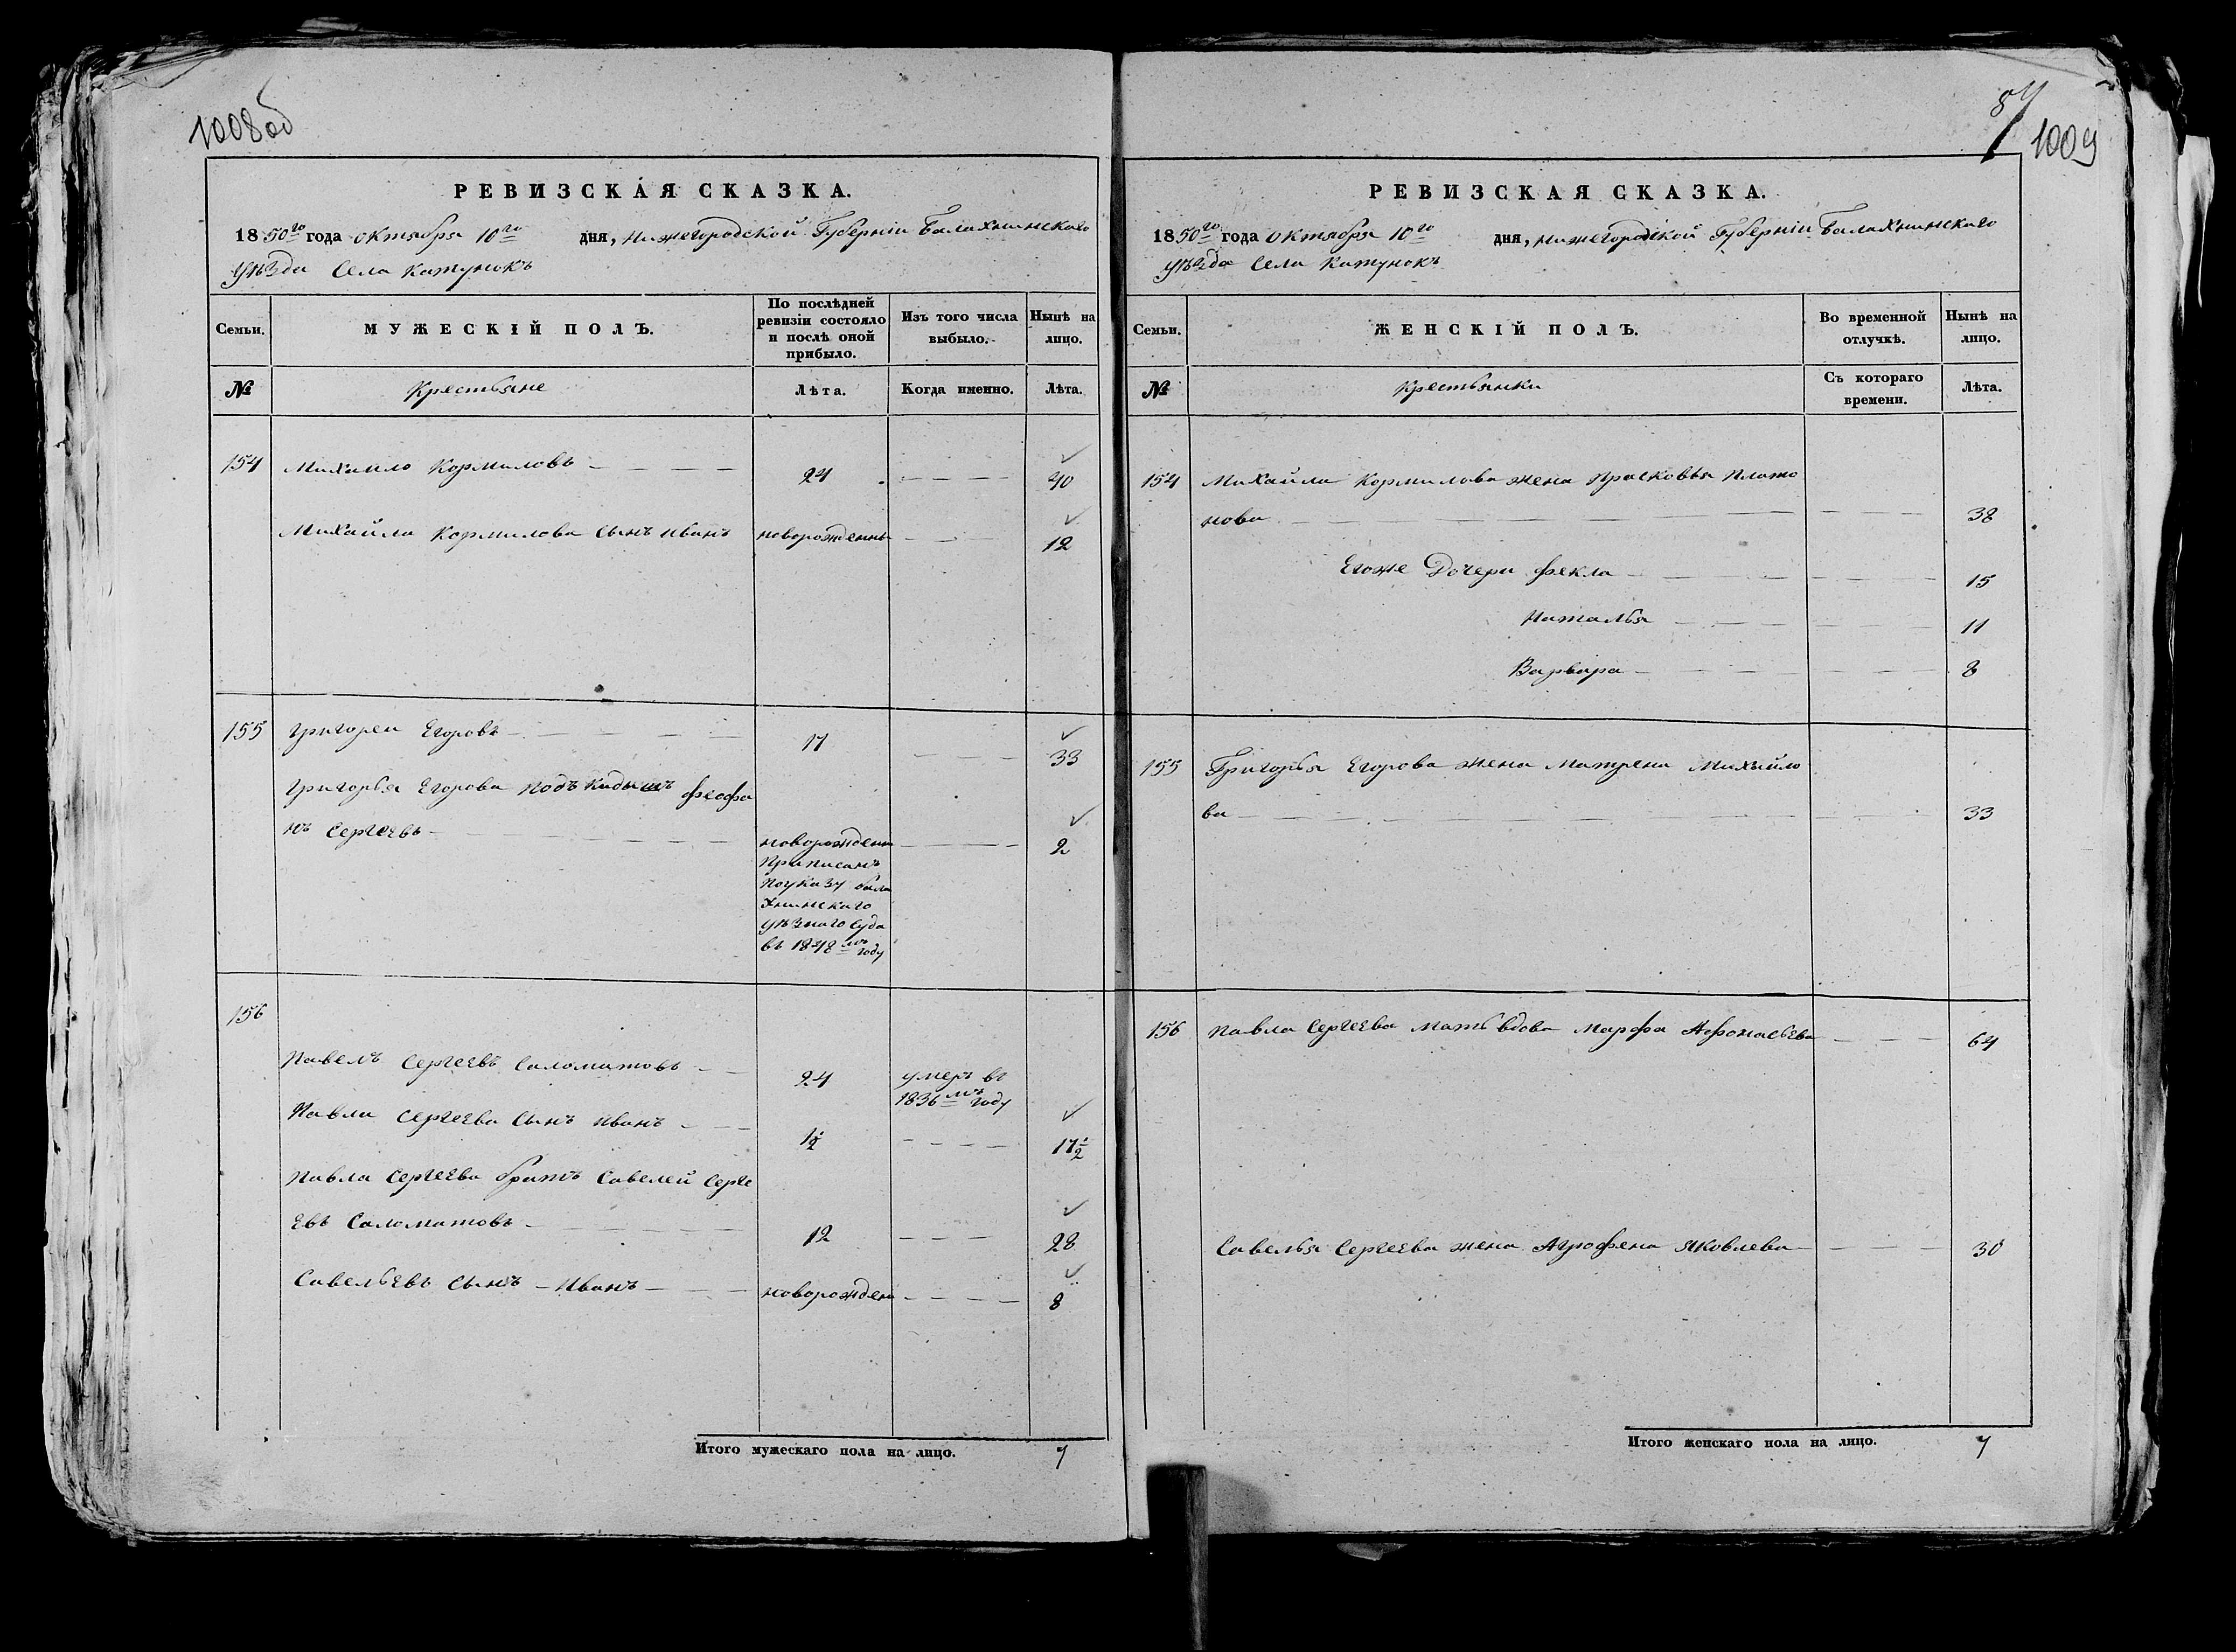 1008об
РЕВИЗСКАЯ СКАЗКА.
1850го года октября 10го дня, Нижегородской Губерніи Балахнинскаго
уѣзда Села Катунокъ
Семьи.
МУЖЕСКІЙ ПОЛЪ.
По послѣдней
ревизіи состояло
и послѣ оной
прибыло.
Изъ того числа
выбыло.
Нынѣ на
лицо.
№
Крестьяне
Лѣта.
Когда именно.
Лѣта.
154 Михайло Кормиловъ 24 40
Михайла Кормилова сынъ Иванъ новорожденны 12
155 Григореи Егоровъ 17 33
Григорья Егорова подъкидышъ феофа
нъ Сергеевъ новорожденн 2
приписанъ
поуказу бала
хнинскаго
уѣзнаго суда
въ 1848мъ году
156
Павелъ Сергеевъ Саломатовъ 24 умеръ въ
1836мъ году
Павла Сергеева сынъ Иванъ 1½ 17½
Павла Сергеева братъ Савелей Серге
евъ Саломатовъ 12 28
Савельевъ сынъ Иванъ новорожден 8
Итого мужескаго пола на лицо. 7
1009
РЕВИЗСКАЯ СКАЗКА.
1850го года октября 10го дня, Нижегородской Губерніи Балахнинскаго
уѣзда Села Катунокъ
Семьи.
ЖЕНСКІЙ ПОЛЪ.
Во временной
отлучкѣ.
Нынѣ на
лицо.
№
Крестьянки
Съ котораго
времени.
Лѣта.
154 Михайла Кормилова жена Прасковья Плато
нова 38
Егоже Дочери фекла 15
Наталья 11
Варвара 8
155 Григорья Егорова жена Матрена Михайло
ва 33
156 Павла Сергеева мать вдова Марфа Афонасьева 64
Савелья Сергеева жена Агрофена Яковлева 30
Итого женскаго пола на лицо. 7